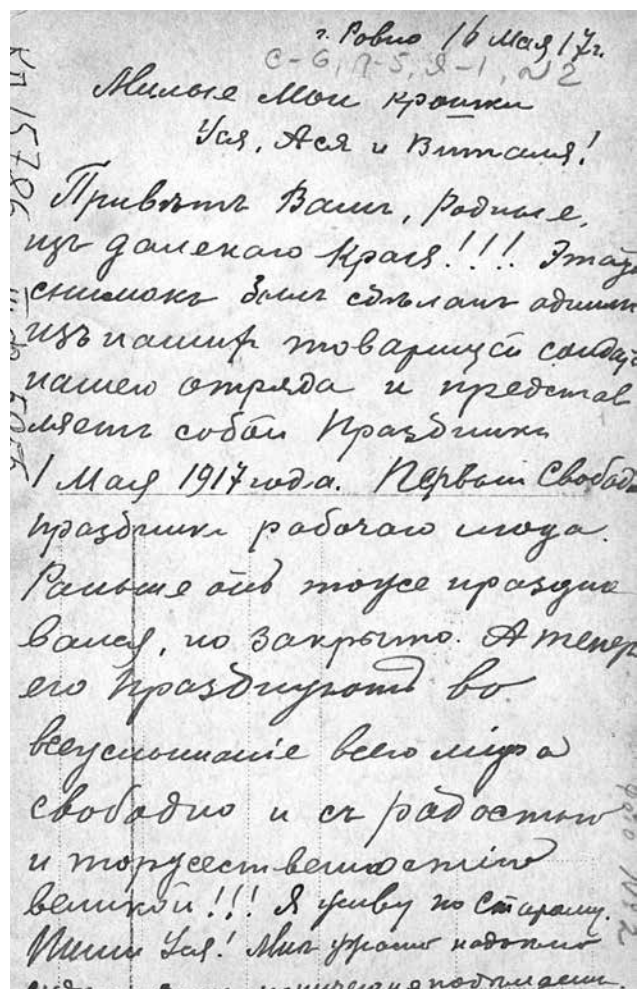 г. Ровно 16 Мая 17г.
С-6, П-5, Я-1, №2
Милые Мои крошки
Уся, Ася и Виталя!
Привѣтъ Вамъ, Родные,
изъ далекаго Края!!!
снимокъ былъ сдѣланъ одним
изъ нашихъ товарищей солдат
нашего отряда и представ
ляетъ собой Праздникъ
1 Мая 1917 года. Первый Свобод
праздникъ рабочаго люда.
Раньше онъ тоже праздно
вался, но закрыто. А тепер
его празднуютъ во
всеуслышаніе всего міра
свободно и съ радостью
и торжественностію
великой!!! Я живу по Старому.
Уся! Мнѣ ужасно надоѣло
КП 15786
фото № 2